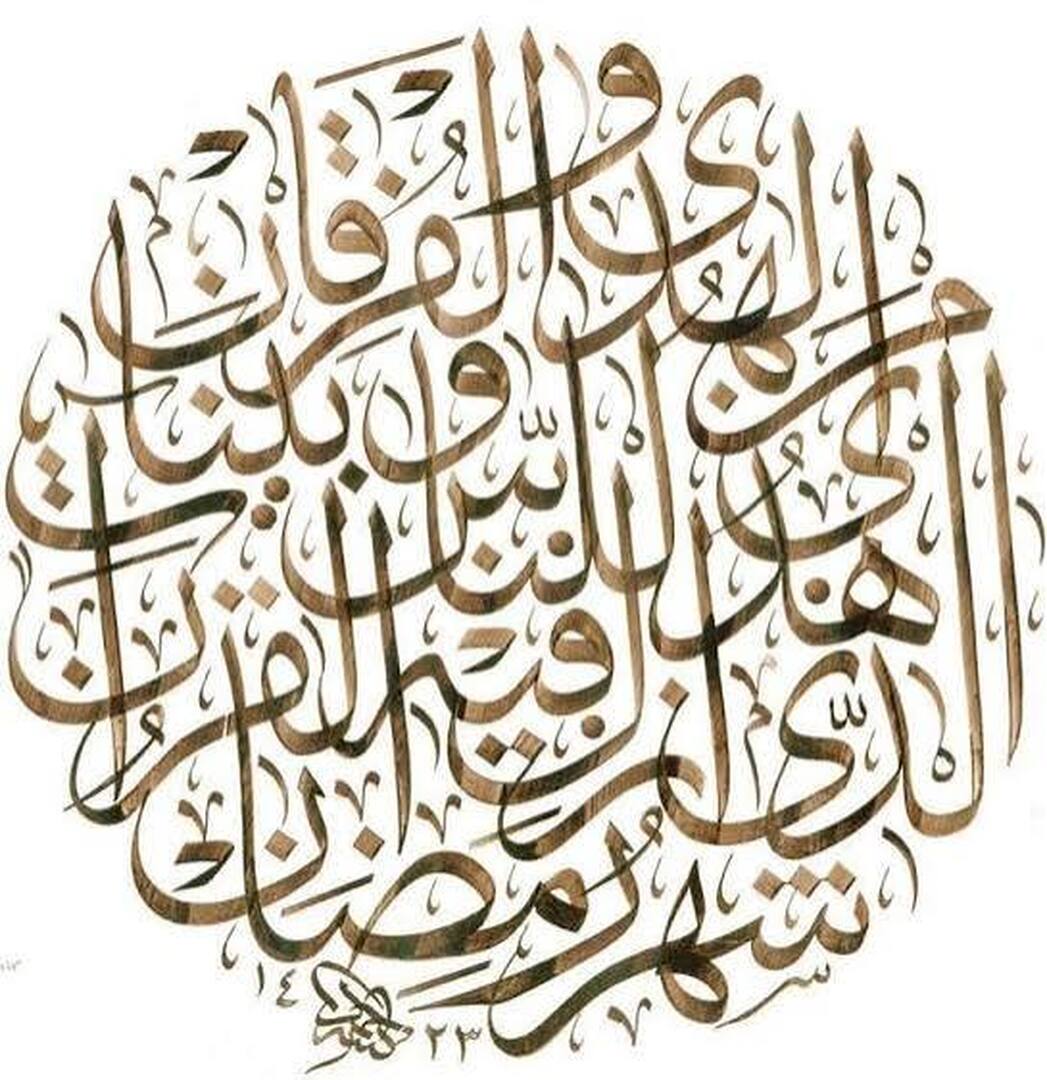 شَهْرُ رَمَضَانَ
الَّذِي أُنْزِلَ فِيهِ الْقُرْآنُ
هُدًى لِلنَّاسِ وَبَيِّنَاتٍ
مِنَ الْهُدَى وَالْفُرْقَانِ
١٤٢٣